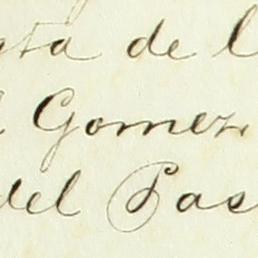 sta de l
Gomez
del Pas